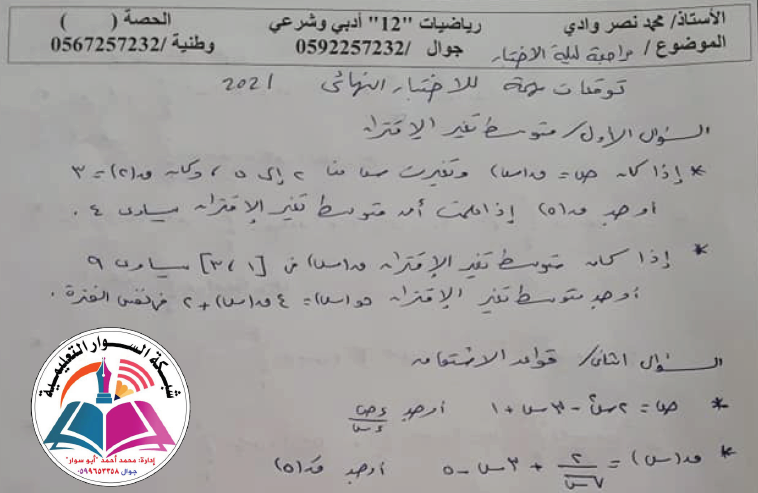 الأستاذ/ محمد نصر وادي رياضيات "12" أدبي وشرعي الحصة ( )
الموضوع / مراجعة ليلة الاختبار جوال /0592257232 وطنية /0567257232
توقعات مهمة للاختبار النهائي 2021
السؤال الأول/ متوسط تغير الإقتران
* إذا كان ص = ق(س) وتغيرت س من ٢ إلى ٥ ، وكان ق(٢) = ٣
أوجد ق(٥) إذا علمت أن متوسط تغير الإقتران يساوي ٤ .
* إذا كان متوسط تغير الإقتران ق(س) في [١ ، ٣] يساوي ٩
أوجد متوسط تغير الإقتران هـ(س) = ٤ق(س) + ٢ في نفس الفترة .
السؤال الثاني/ قواعد الاشتقاق
* ص = ٢س - ٣س + ١ أوجد ءص/ءس
* ق(س) = ٢/√س + ٣س - ٥ أوجد قَ(٥)
شبكة السوار التعليمية
إدارة: محمد أحمد "أبو سوار"
جوال ٠٥٩٩٦٥٣٣٥٨